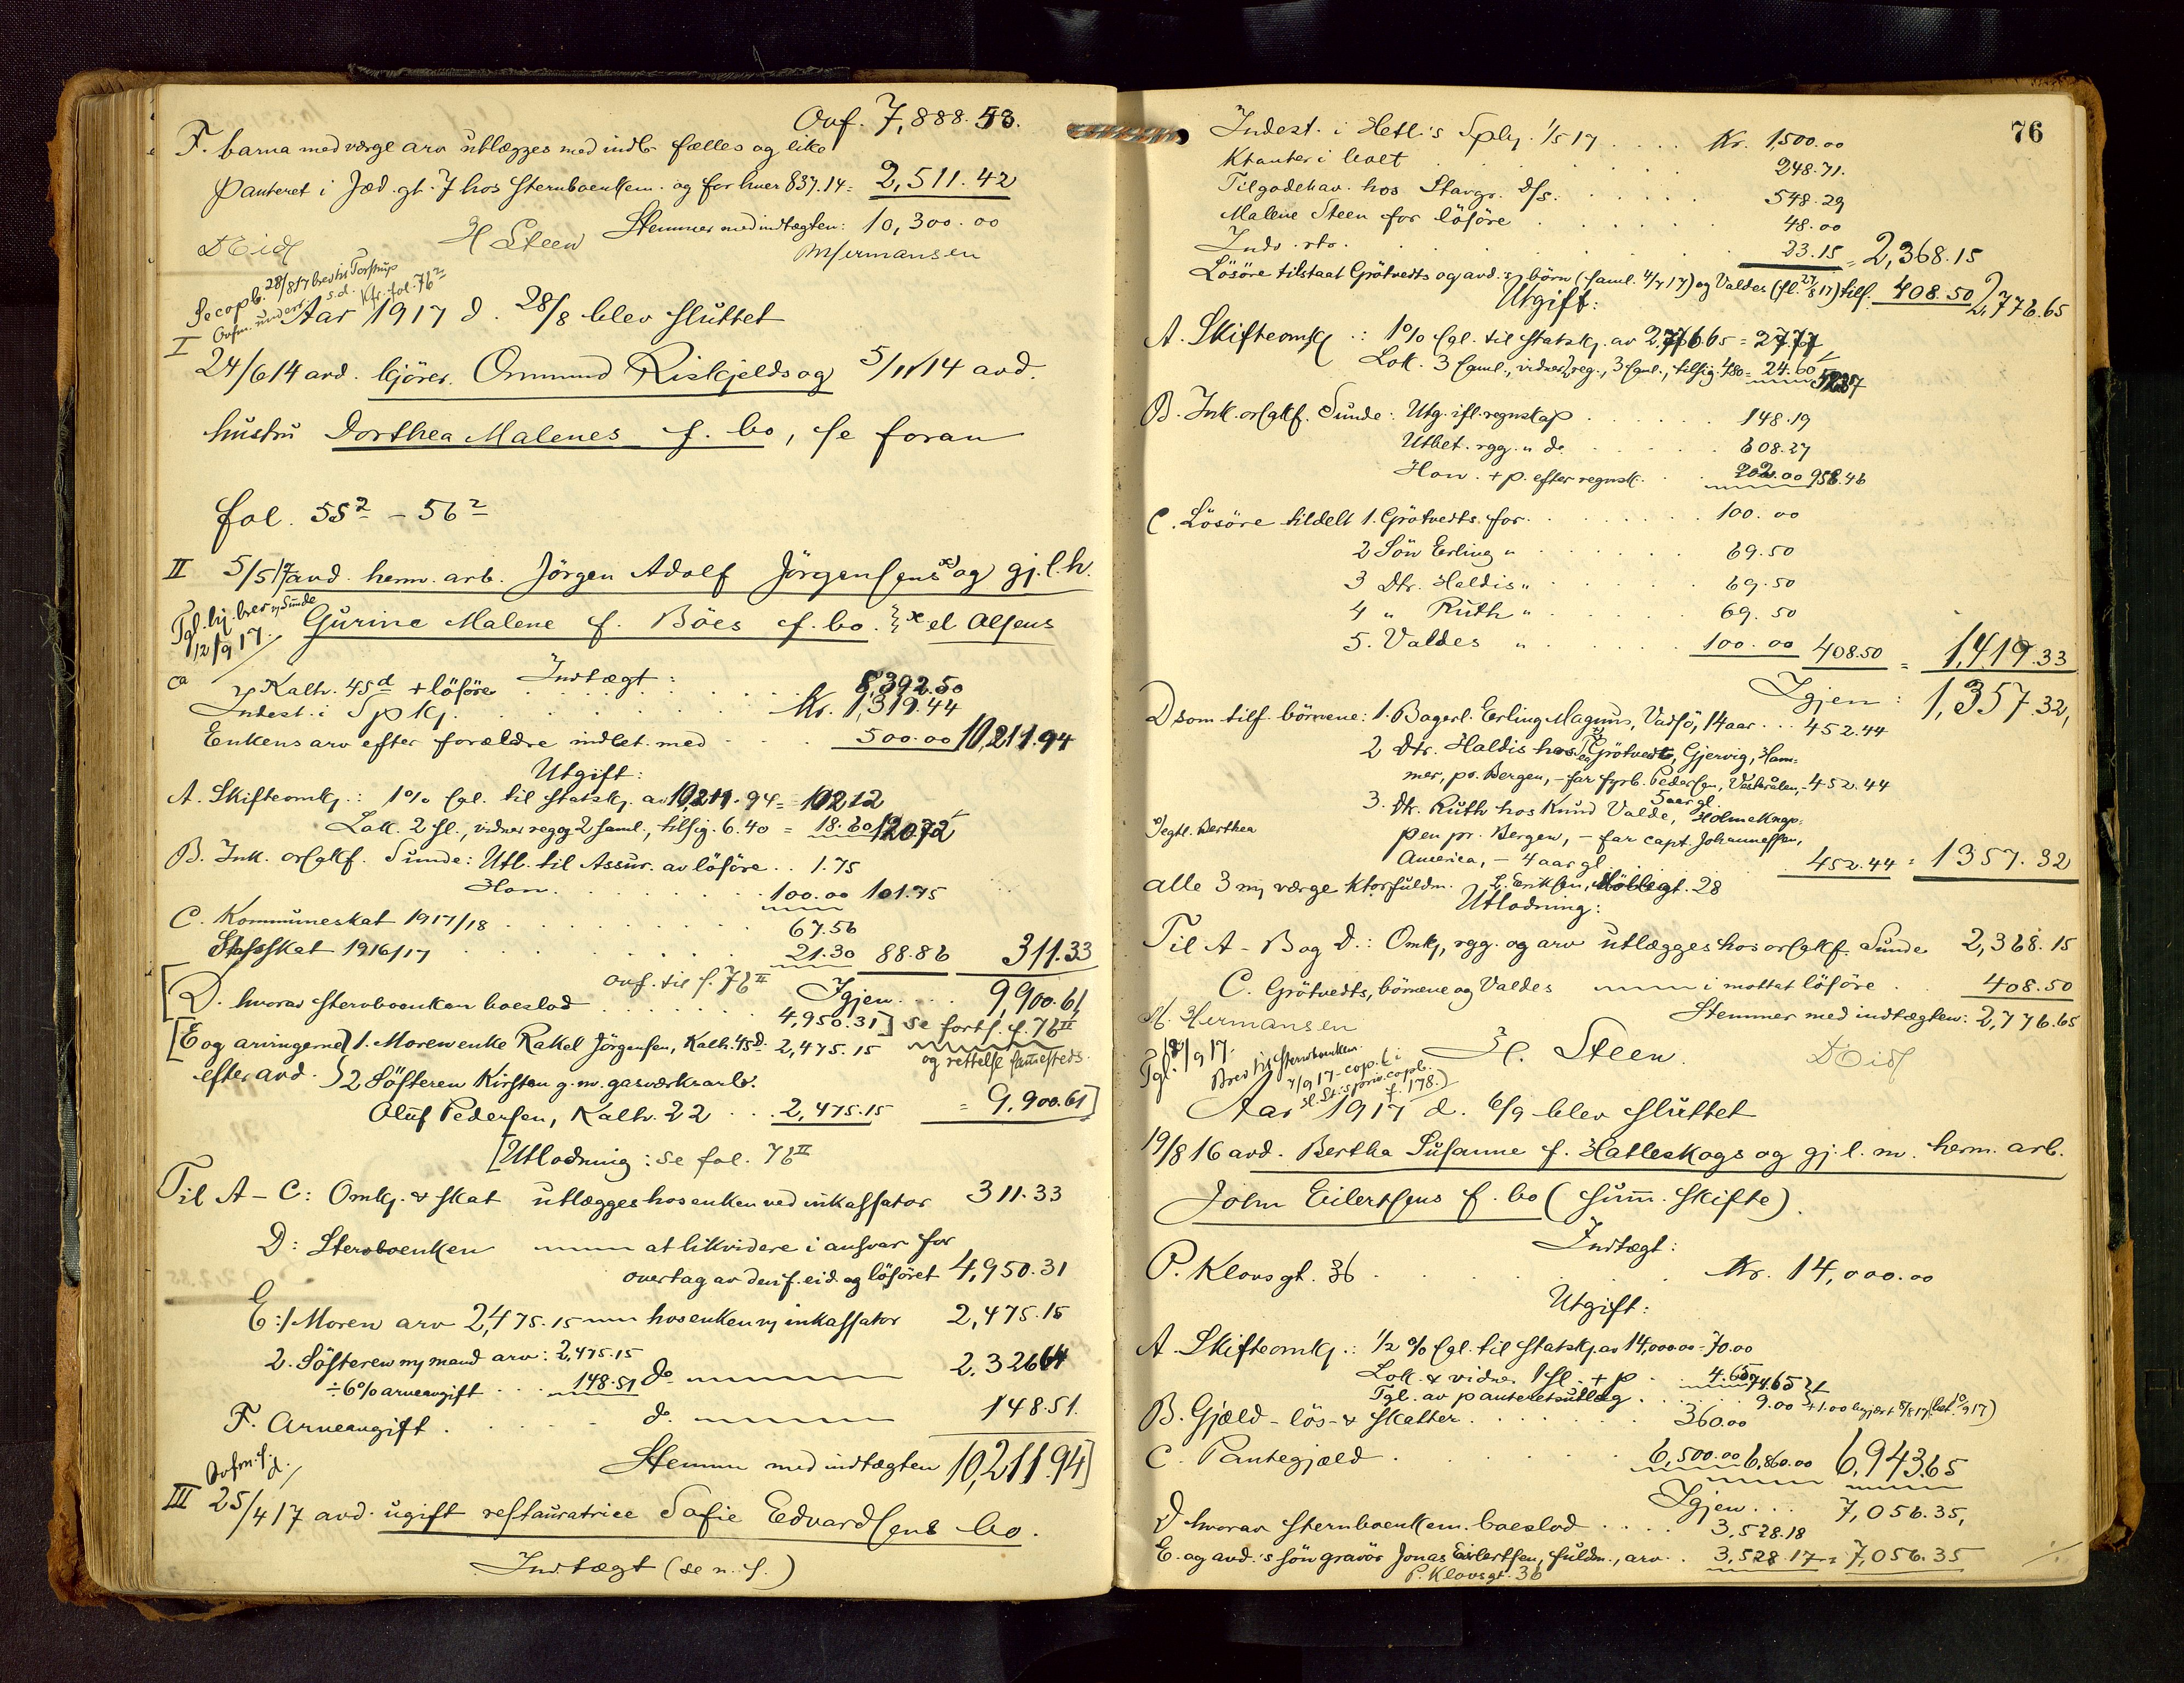 Ovf. 7,888.58.
F. barna med værge arv utlægges med indb. fælles og like
panteret i Jæd. gt. 7 hos stervboenkem. og for hver 837.14 = 2,511.42
Stemmer med indtægten: 10,300.00
D Eid H Steen M Hermansen
Secopb. 28/8 17 brev til Torstrup
Ovfm. under s.d. Kfr. fol. 76²
Aar 1917 d. 28/8 blev sluttet
I
24/6 14 avd. kjörer. Ommund Riskjelds og 5/11 14 avd.
hustru Dorthea Malenes f. bo, se foran
fol. 55² - 56²
II 5/5 17 avd. herm. arb. Jörgen Adolf Jörgensens x) og gj. l. h.
Gurine Malene f. Böes f. bo. x el Olsens
Tgl. bj. brev Sunde
12/9 17.
Indtægt:
Kalhv. 45d + lösöre 8,392.50
Indest. i Spkj. Kr. 1,319.44
Enkens arv efter forældre indbet. med 500.00 10,211.94
Utgift:
A. Skifteomk.: 1% sgl. til statskj. av 10,211.94 = 102.12
Lok. 2 sl., vidner reg og 2 saml., tilsig. 6.40 = 18.60 120.72
B. Ink. orsgkf. Sunde: Utl. til Assur. av lösöre .. 1.75
Hon. 100.00 101.75
C. Kommuneskat 1917/18 67.56
Statsskat 1916/17 21.30 88.86 311.33
ovf. til f. 76 II Igjen.... 9,900.61
[D. hvorav stervboenken boeslod 4,950.31] se forts. f. 76 II
[E og arvingerne 1. Moren enke Rakel Jörgensen, Kalh. 45d 2,475.15 og rettelse sammesteds.
efter avd. 2 Söstren Kirsten g. m. gasværksarb.
Oluf Pedersen, Kalhv. 22 .. 2,475.15 = 9,900.61]
[Utlodning: se fol. 76 II
Til A - C: Omkj. & skat utlægges hos enken ved inkassator 311.33
D: Stervboenken at likvidere i ansvar for
overtag av den f. eid. og lösöret 4,950.31
E: 1 Moren arv 2,475.15 hos enken inkassator 2,475.15
2. Söstren mand arv: 2,475.15
÷ 6% arveavgift ... 148.51 do 2,326.64
F. Arveavgift . do. 148.51
Stemmer med indtægten 10,211.94]
Ovfm. s. d.
III 25/4 17 avd. ugift restauratrice Sofie Edvardsens bo.
Indtægt (se n. s.)
76
Indest. i Hetl's Spbg. 1/5 17 .... Kr. 1,500.00
Ktanter i boet 248.71.
Tilgodehav. hos Stavgr. D/S. 548.29
Malene Steen for lösöre 48.00
Indv. rtr. 23.15 = 2,368.15
Lösöre tilstaat Grötvedts og avd.s börn (saml. 4/7 17) og Valdes (sl. 27/8 17) tils. 408.50 2,776.65
Utgift:
A. Skifteomk.: 1% sgl. til statskj. av 2,776.65 = 27.77
Lok. 3 saml., vidner reg., 3 saml., tilsig. 4.80 = 24.60 52.37
B. Ink. orsgkf. Sunde: Utg. ifl. regnskap 148.19
Utbet. rgg. " do 608.27
Hon. + p. efter regnsk. 202.00 958.46
C. Lösöre tildelt 1. Grötvedts for 100.00
2 Sön Erling " 69.50
3 Dtr. Haldis " 69.50
4 " Ruth " 69.50
5. Valdes " 100.00 408.50 = 1,419.33
Igjen: 1,357.32,
D som tilf. börnene: 1. Bagerl. Erling Magnus, Vadsö, 14 aar ... 452.44
2 Dtr. Haldis hos Grötvedts, Gjervig, Ham-
mer, pr. Bergen, - far fyrb. Pedersen, Vesterålen, - 452.44
5 aar gl.
3. Dtr. Ruth hos Knud Valde, Holmeknap-
pen pr. Bergen, - far capt. Johannessen,
America, - 4 aar gl. 452.44 = 1357.32
Bertha
alle 3 værge ktorfuldm. L. Eriksen, Möllegt. 28
Utlodning:
Til A - B og D.: Omkj, rgg. og arv utlægges hos orsgkf. Sunde 2,368.15
C. Grötvedts, börnene og Valdes i mottat lösöre . 408.50
Stemmer med indtægten: 2,776.65
M. Hermansen H. Steen. D Eid
Tgl. 18/9 17. Brev til Stervboenken.
7/9 17 - cop. b i
H. St.'s priv. copb. f. 178.)
Aar 1917 d. 6/9 blev sluttet
19/8 16 avd. Bertha Susanne f. Hatleskogs og gj. l. m. herm. arb.
John Eilertsens f. bo (summ. skifte).
Indtægt:
P. Klovsgt. 36 . Kr. 14,000.00
Utgift:
A. Skifteomkj.: 1/2 % sgl. til statskj. av 14,000.00 = 70.00
Lok. & vidner 1 sl. + p 4.65 74.65
Tgl. av panteretsutlæg 9.00 + 1.00
B. Gjæld - lös- & skatter 360.00
C. Pantegjæld 6,500.00 6,860.00 6,943.65
Igjen... 7,056.35,
D hvorav stervboenkem. boeslod .... 3,528.18
E. og avd.'s sön gravör Jonas Eilertsen, fuldm., arv .. 3,528.17 = 7,056.35
P. Klovsgt. 36